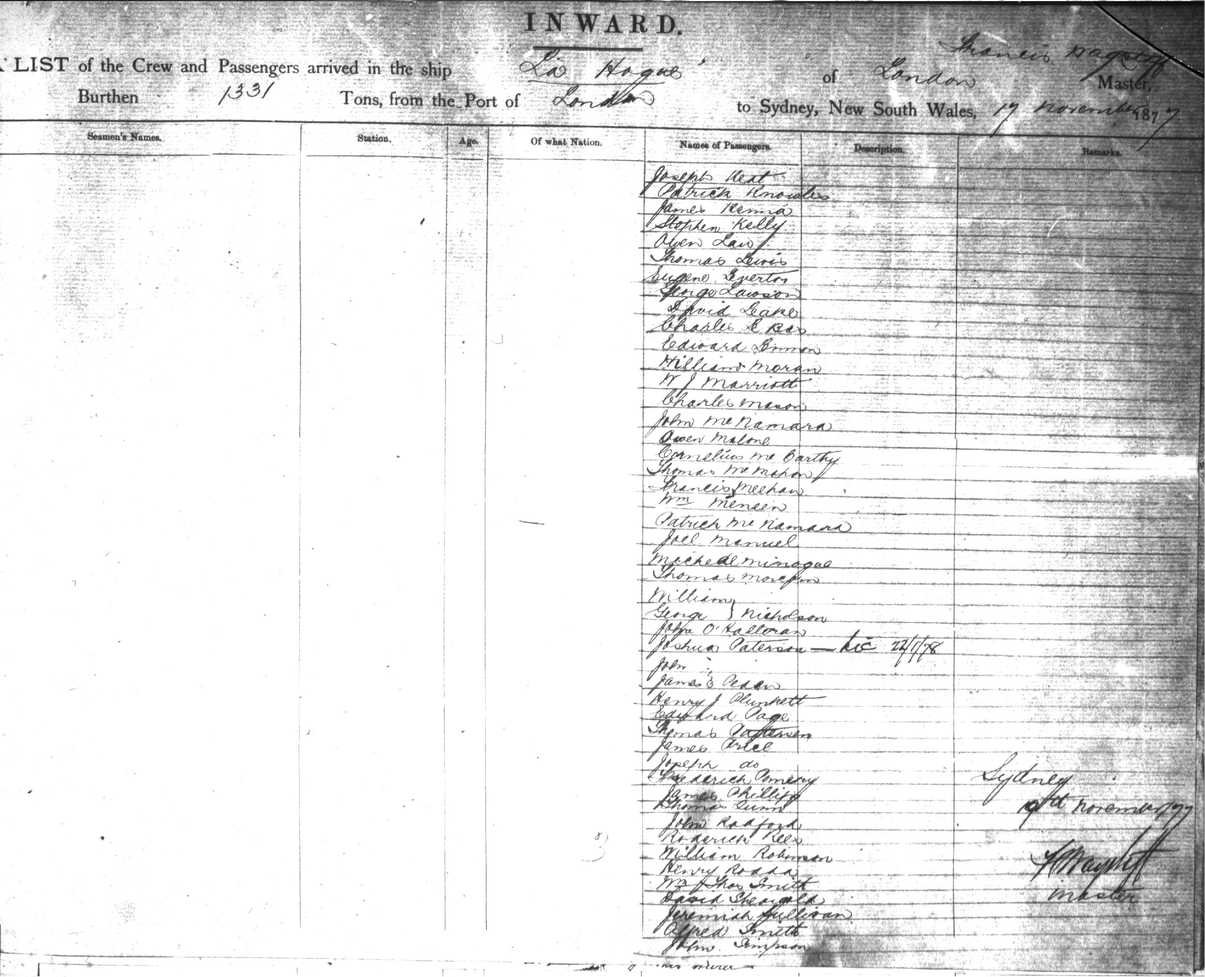 INWARD.
LIST of the Crew and Passengers arrived in the ship La Hogue of London Francis Master,
Burthen 1331 Tons, from the Port of London to Sydney, New South Wales, 17 November 1877
Seamen's Names. Station. Age. Of what Nation. Names of Passengers. Description. Remarks.
Joseph Keat
Patrick Knowles
James Kenna
Stephen Kelly
Owen Law
Thomas Lewis
Eugene Leverton
George Lawson
David Leake
Charles
Edward
William Moran
W J Marriott
Charles Mason
John McNamara
Owen Malone
Cornelius McCarthy
Thomas McMahon
Francis Meehan
Wm
Patrick McNamara
Joel Manuel
Michael Minogue
Thomas
William }
George } Nicholson
John O'Halloran
Joshua Paterson — 22/1/78
John "
James Peden
Henry J Plunkett
Edward Page
Thomas Pattersen
James
Joseph do
Frederick Pomery
James Phillips
Thomas
John Radford
Roderick
William Robinson
Henry Rodda
Wm J Thos Smith
David
Jeremiah Sullivan
Alfred Smith
John Simpson
Sydney
November 77
Master